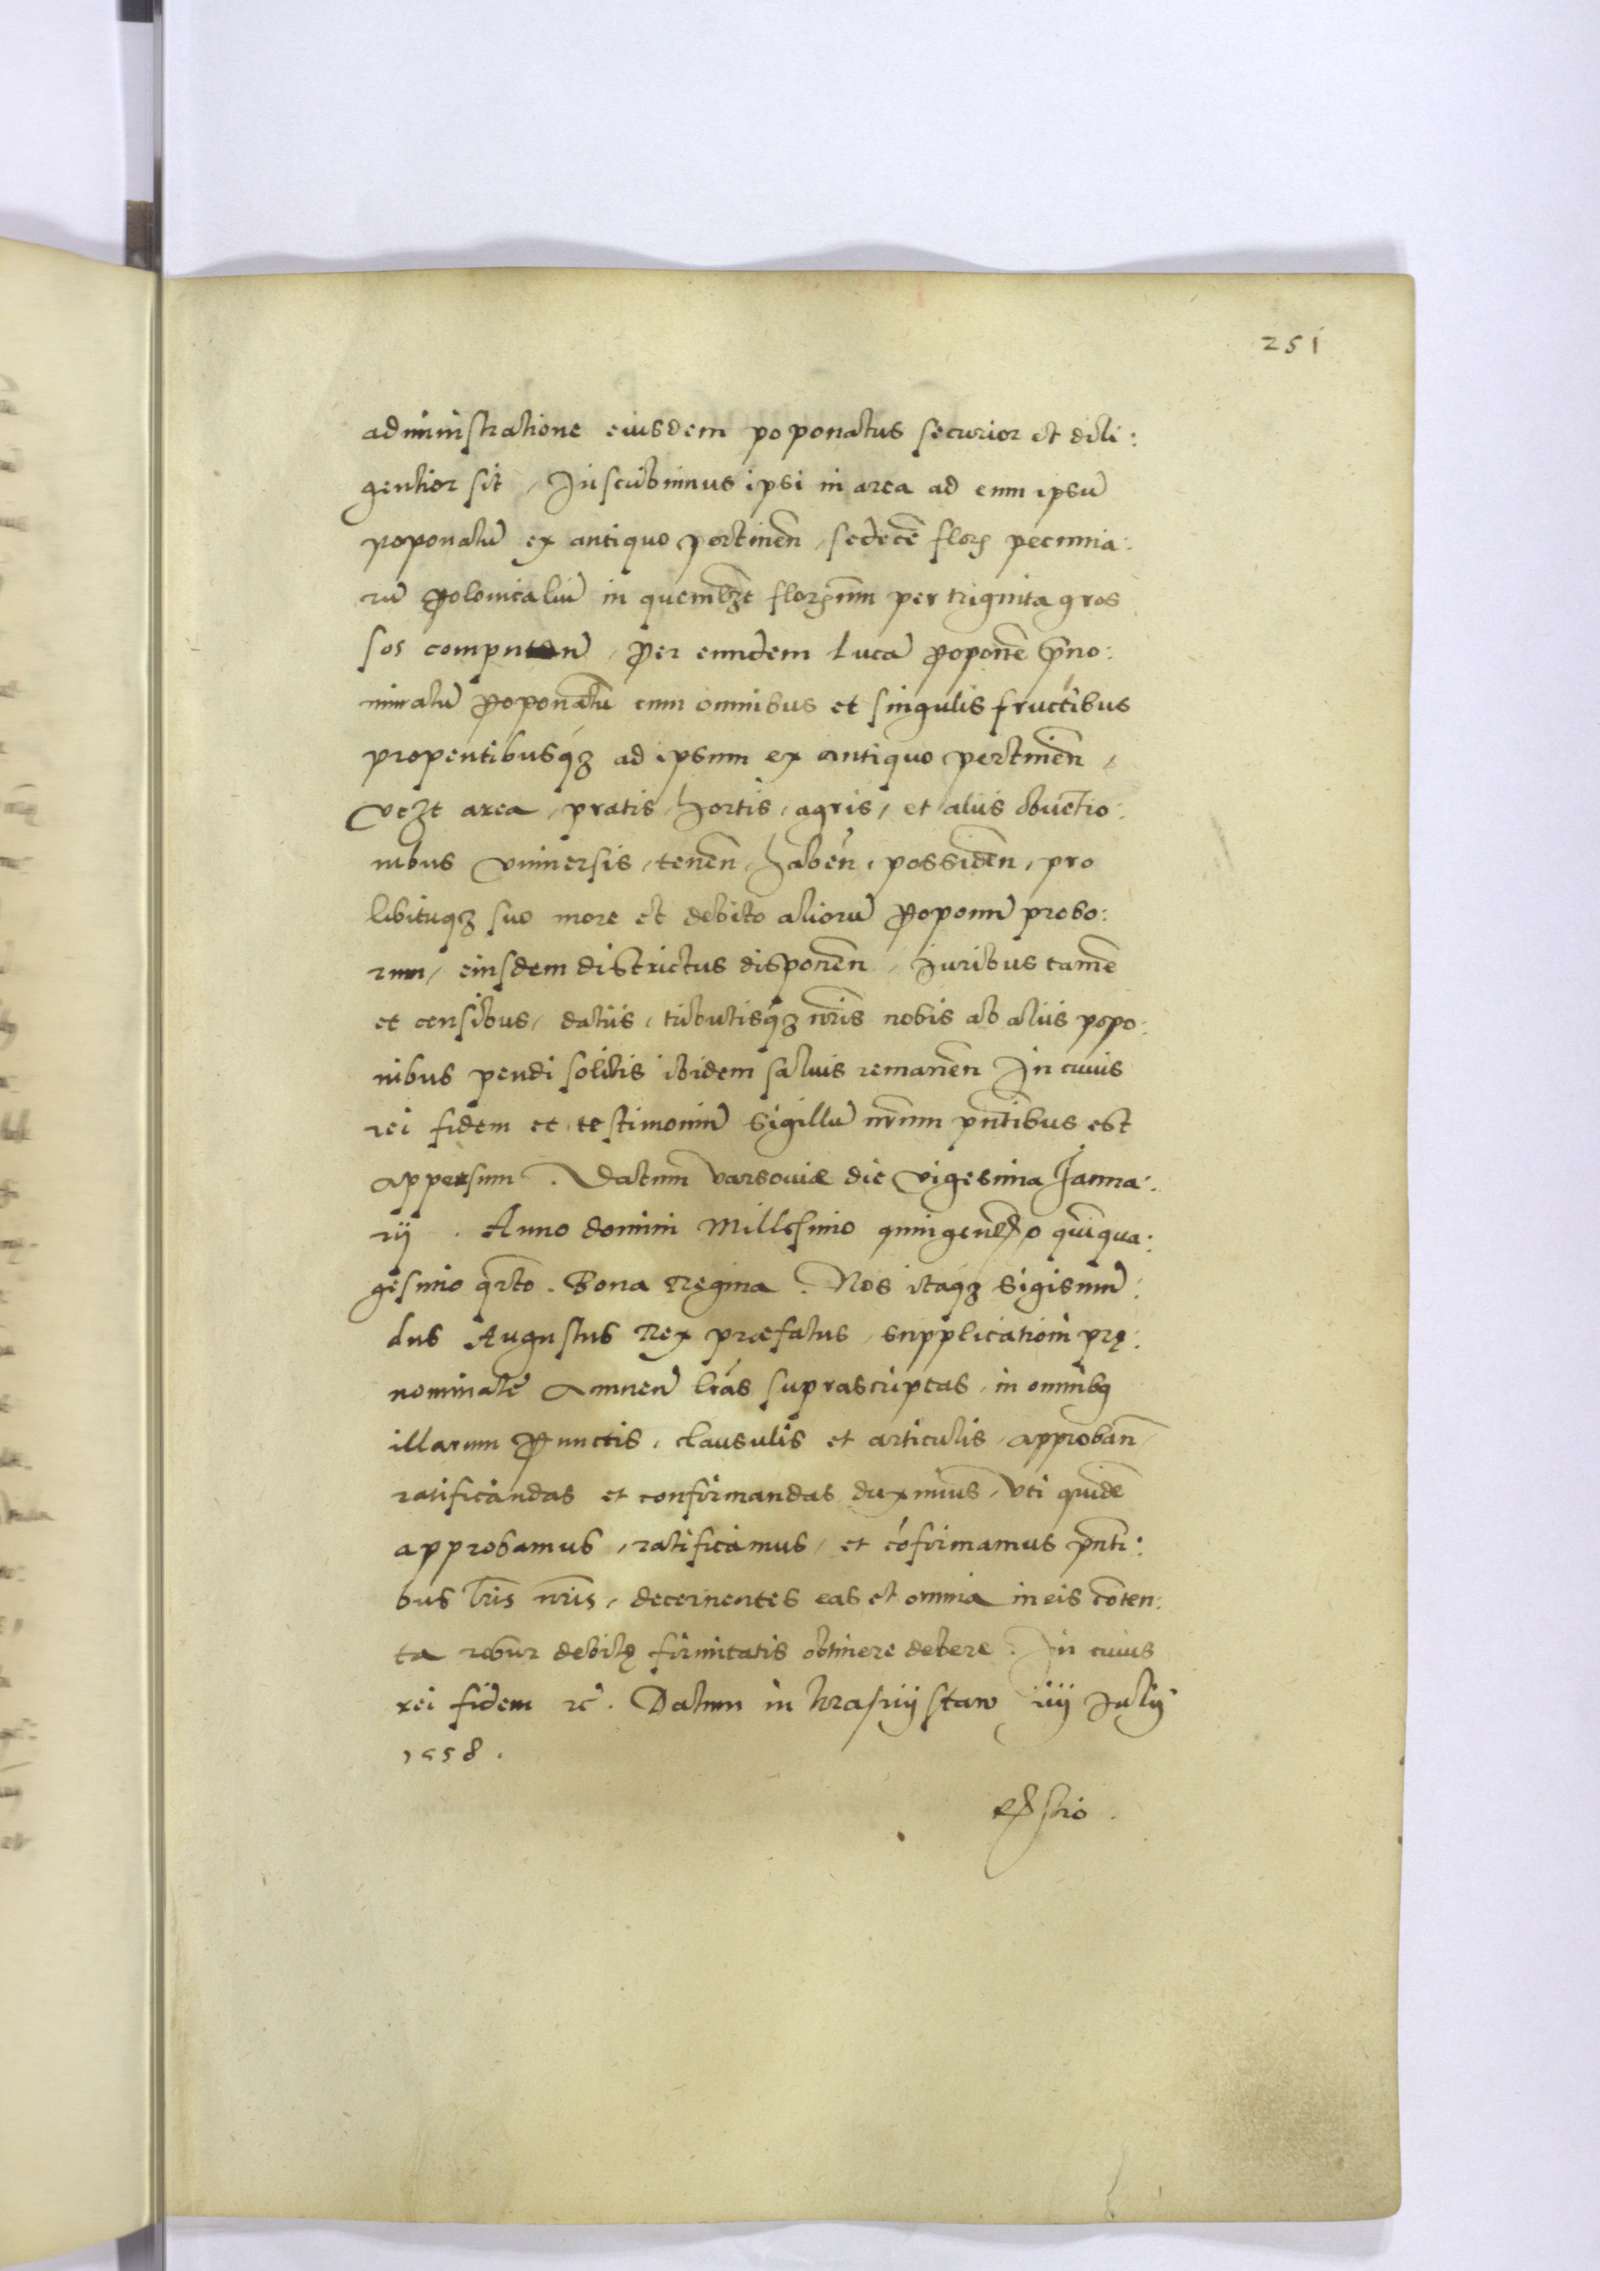 251
administratione eiusdem poponatus securior et dili:
gentior sit, Inscribimus ipsi in area ad eum ipsū
poponatū ex antiquo pertineñ, sedecē florͦ pecunia:
rū Polonicaliū in quemlꝫt florenum per triginta gros
sos computanđ, Per eundem Lucā Poponē p̄no:
minatū Poponatū cum omnibus et singulis fructibus
proventibusqꝫ ad ipsum ex antiquo pertineñ,
vcꝫt area, pratis, hortis, agris, et aliis obventio:
nibus Universis, teneñ, habeñ, possideñ, pro
libituqꝫ suo more et debito aliorū Poponū probo:
rum, eiusdem districtus disponeñ, Iuribus tamē
et censibus, datiis, tributisqꝫ nr̄is nobis ab aliis popo:
nibus pendi solitis ibidem salvis remaneñ In cuius
rei fidem et testimoniū Sigillū nr̄um pn̄tibus est
appensum. Datum Varsoviæ die Vigesima Janua:
rij. Anno domini Millesimo quingen̄mo quinqua:
gesimo qr̄to. Bona Regina. Nos itaqꝫ Sigismū:
dus Augustus Rex præfatus, supplicationi prę:
nominatę annueñ lr̄as suprascriptas, in omnibꝫ
illarum Punctis, clausulis et articulis, approbañ
ratificandas et confirmandas duximus, Uti quidē
approbamus, ratificamus, et cōfirmamus pn̄ti:
bus lr̄is nr̄is, decernentes eas et omnia in eis cōten:
ta robur debitę firmitatis obtinere debere. In cuius
rei fidem &c. Datum in Krasnystaw iiij Julij
1558.